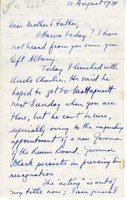 12 August 1934
Dear Mother & Father,
Ottawa today? I have
not heard from you since you
left Albany.
Today I lunched with
Uncle Charlie. He said he
hoped to get to Mattapoisett
next Sunday when you are
there, but he can't be sure,
especially owing to the impending
appointment of a new Governor
of the Reserve Board, Governor
Black persists in pressing his
resignation.
The acting is out of
my title now; I am